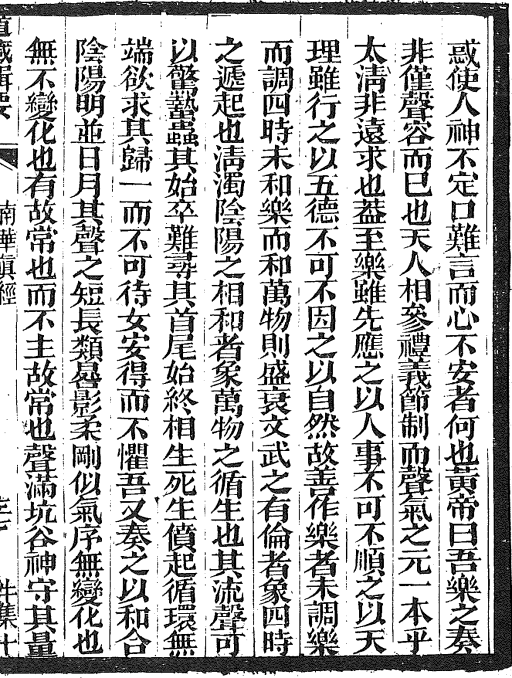 惑使人神不定口難言而心不安者何也黃帝曰吾樂之奏
非僅聲容而已也天人相參禮義節制而聲氣之元一本乎
太清非遠求也葢至樂雖先應之以人事不可不順之以天
理雖行之以五德不可不因之以自然故善作樂者未調樂
而調四時未和樂而和萬物則盛衰文武之有倫者象四時
之遞起也淸濁陰陽之相和者象萬物之循生也其流聲可
以驚蟄蟲其始卒難尋其首尾始終相生死生僨起循環無
端欲求其歸一而不可待女安得而不懼吾又奏之以和合
陰陽明並日月其聲之短長類晷影柔剛似氣序無變化也
無不變化也有故常也而不主故常也聲滿坑谷神守其量
道藏輯要
南華眞經